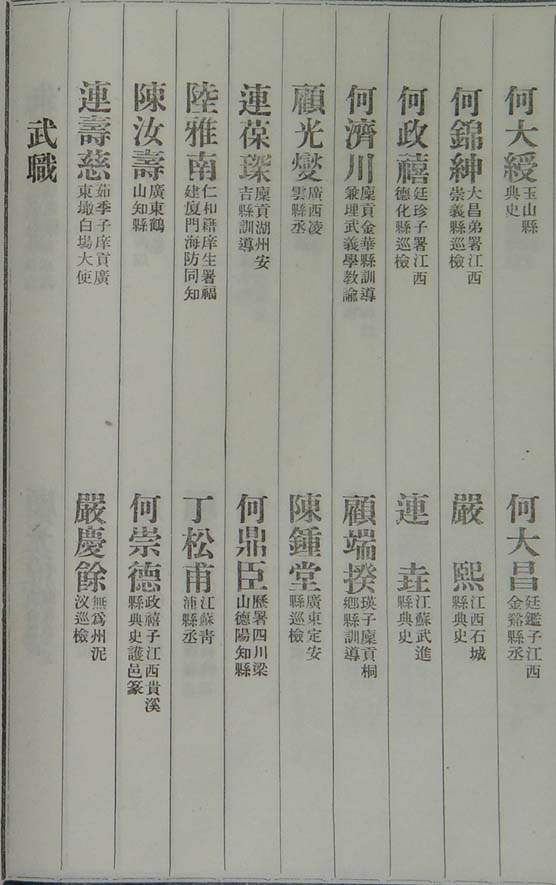 何大綬 玉山縣典史 何大昌 廷鑑子江西金谿縣丞
何錦紳 大昌弟署江西崇義縣巡檢 嚴熙 江西石城縣典史
何政禧 廷珍子署江西德化縣巡檢 連垚 江蘇武進縣典史
何濟川 廩貢金華縣訓導兼埋武義學教諭 顧端揆 瑛子廩貢桐鄉縣訓導
顧光燮 廣西凌雲縣丞 陳鍾堂 廣東定安縣巡檢
連葆琛 廩貢湖州安吉縣訓導 何鼎臣 歷署四川梁山德陽知縣
陸雅南 仁和籍庠生署福建廈門海防同知 丁松甫 江蘇青浦縣丞
陳汝壽 廣東鶴山知縣 何崇德 政禧子江西貴溪縣典史護邑篆
連壽慈 茹季子庠貢廣東墩白場大使 嚴慶餘 無為州泥汊巡檢
武職